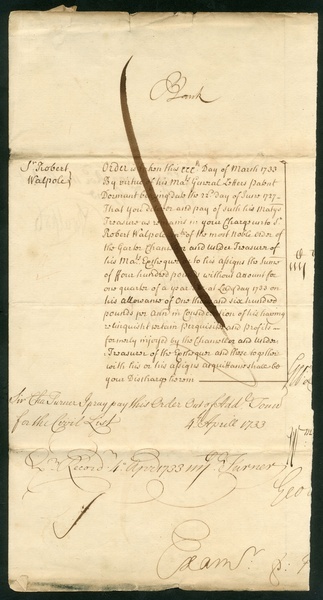 Bank
Sr. Robert
Walpole
Order is taken this XXXth Day of March 1733
By virtue of his Mats. General Letters Patent
Dormant bearing date the 22d. Day of June 1727
That you deliver and pay of such his Mats
Treasure as remains in your Charge unto Sr.
Robert Walpole Knt. of the most Noble order of
the Garter Chancellor and under Treasurer of
his Mats. Exchequer or to his assigns the Sume
of ffour hundred pounds without account for
one quarter of a year due at Lady day 1733 on
his allowance of One thousand six hundred
pounds per Ann in Consideration of his having
relinquisht certain perquisites and profits
formerly injoyed by the Chancellor and under
Treasurer of the Exchequer and these together
with his or his assigns acquittance shall be
your Discharge herein
Sir Cha Turner I pray pay this Order Out of
for the Civil List 4 Aprill 1733
Record 4 Apr 1733 Turner
Geo
Exam